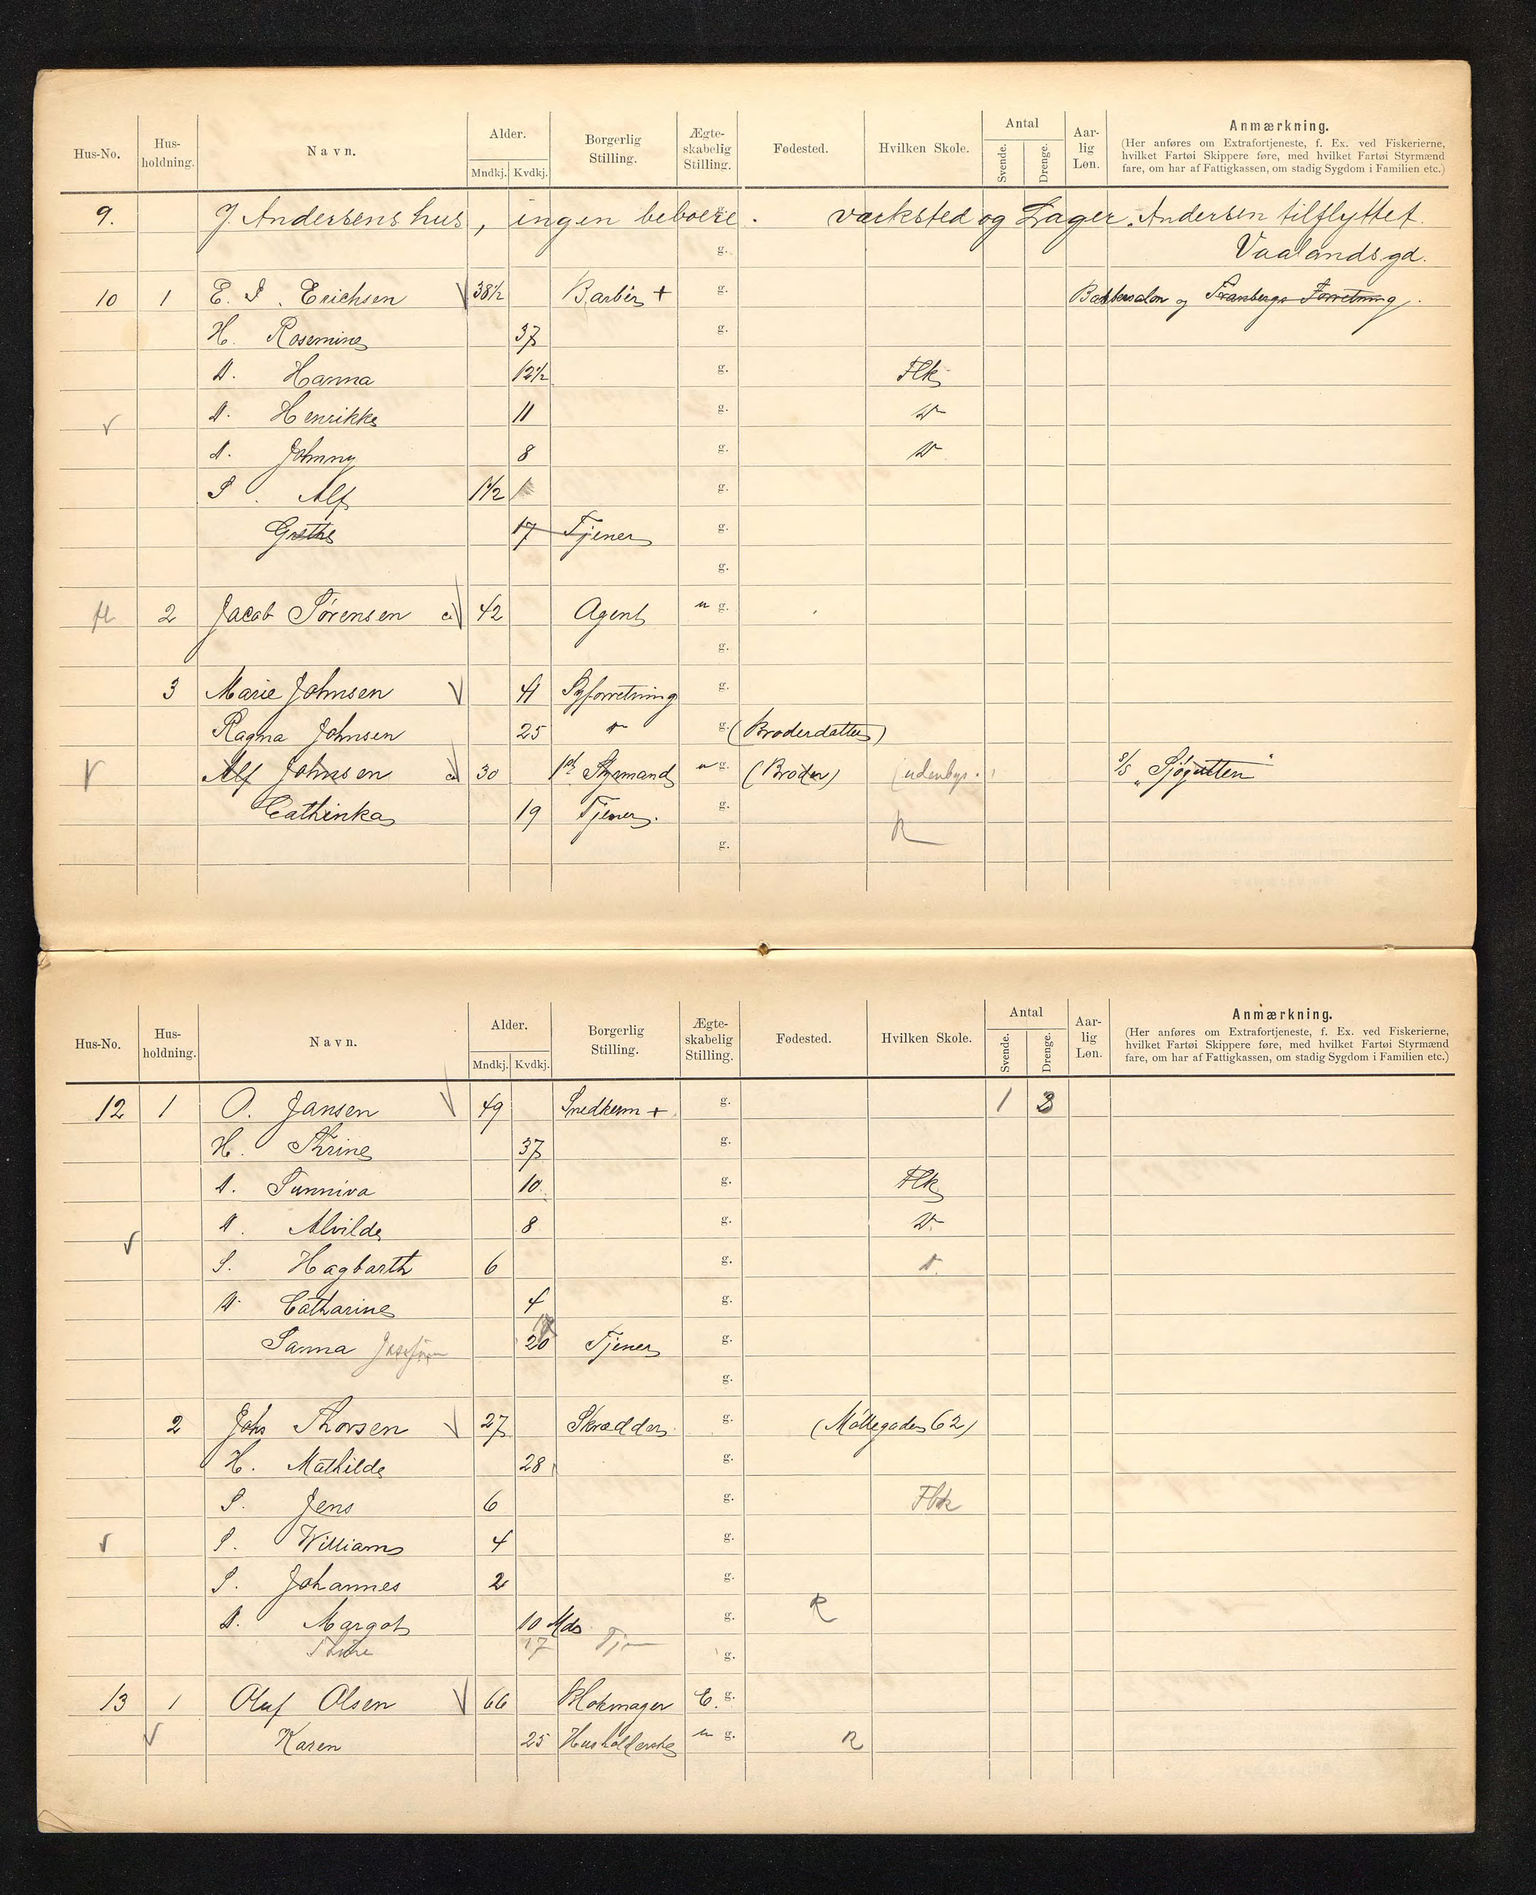 Hus-No. Hus-holdning. Navn. Alder. Mndkj. Kvdkj. Borgerlig Stilling. Ægte-skabelig Stilling. Fødested. Hvilken Skole. Antal Svende. Drenge. Aar-lig Løn. Anmærkning.
(Her anføres om Extrafortjeneste, f. Ex. ved Fiskerierne, hvilket Fartøi Skippere føre, med hvilket Fartøi Styrmænd fare, om har af Fattigkassen, om stadig Sygdom i Familien etc.)
9. J. Andersens hus, ingen beboere. værksted og Lager. Andersen tilflyttet
g. Vaalandsgd.
10 1 E. S. Erichsen 38½ Barber + g. og Forretning.
H. Rosemine 37 g.
D. Hanna 12½ g. Flk
D. Henrikke 11 g. D
D. Johnny 8 g. D
S. Alf 1½ g.
Grethe 17 Tjener g.
g.
2 Jacob Sørensen 42 Agent u g.
g.
3 Marie Johnsen 41 Syforretning g.
Ragna Johnsen 25 " g. (Broderdatter)
Alf Johnsen 30 1st Styrmand u g. (Broder) (udenbys.) S/S "Sjøgutten"
Cathinka 19 Tjener. g. R
g.
Hus-No. Hus-holdning. Navn. Alder. Mndkj. Kvdkj. Borgerlig Stilling. Ægte-skabelig Stilling. Fødested. Hvilken Skole. Antal Svende. Drenge. Aar-lig Løn. Anmærkning.
(Her anføres om Extrafortjeneste, f. Ex. ved Fiskerierne, hvilket Fartøi Skippere føre, med hvilket Fartøi Styrmænd fare, om har af Fattigkassen, om stadig Sygdom i Familien etc.)
12 1 O. Jansen 49 Snedkerm + g. 1 3
H. Thrine 37 g.
D. Sunniva 10 g. Flk
D. Alvilde 8 g. D
S. Hagbarth 6 g. D
D. Catharine 4 g.
Sanna 20 Tjener g.
g.
2 Johs Thorsen 27 Skrædder g. (Møllegaden 62)
H. Mathilde 28 g.
S. Jens 6 g. Flk
S. William 4 g.
S. Johannes 2 g.
D. Margot 10 Mdr g. R
17 Tj g.
13 1 Oluf Olsen 66 Blokmager E. g.
Karen 25 Husholderske u g. R